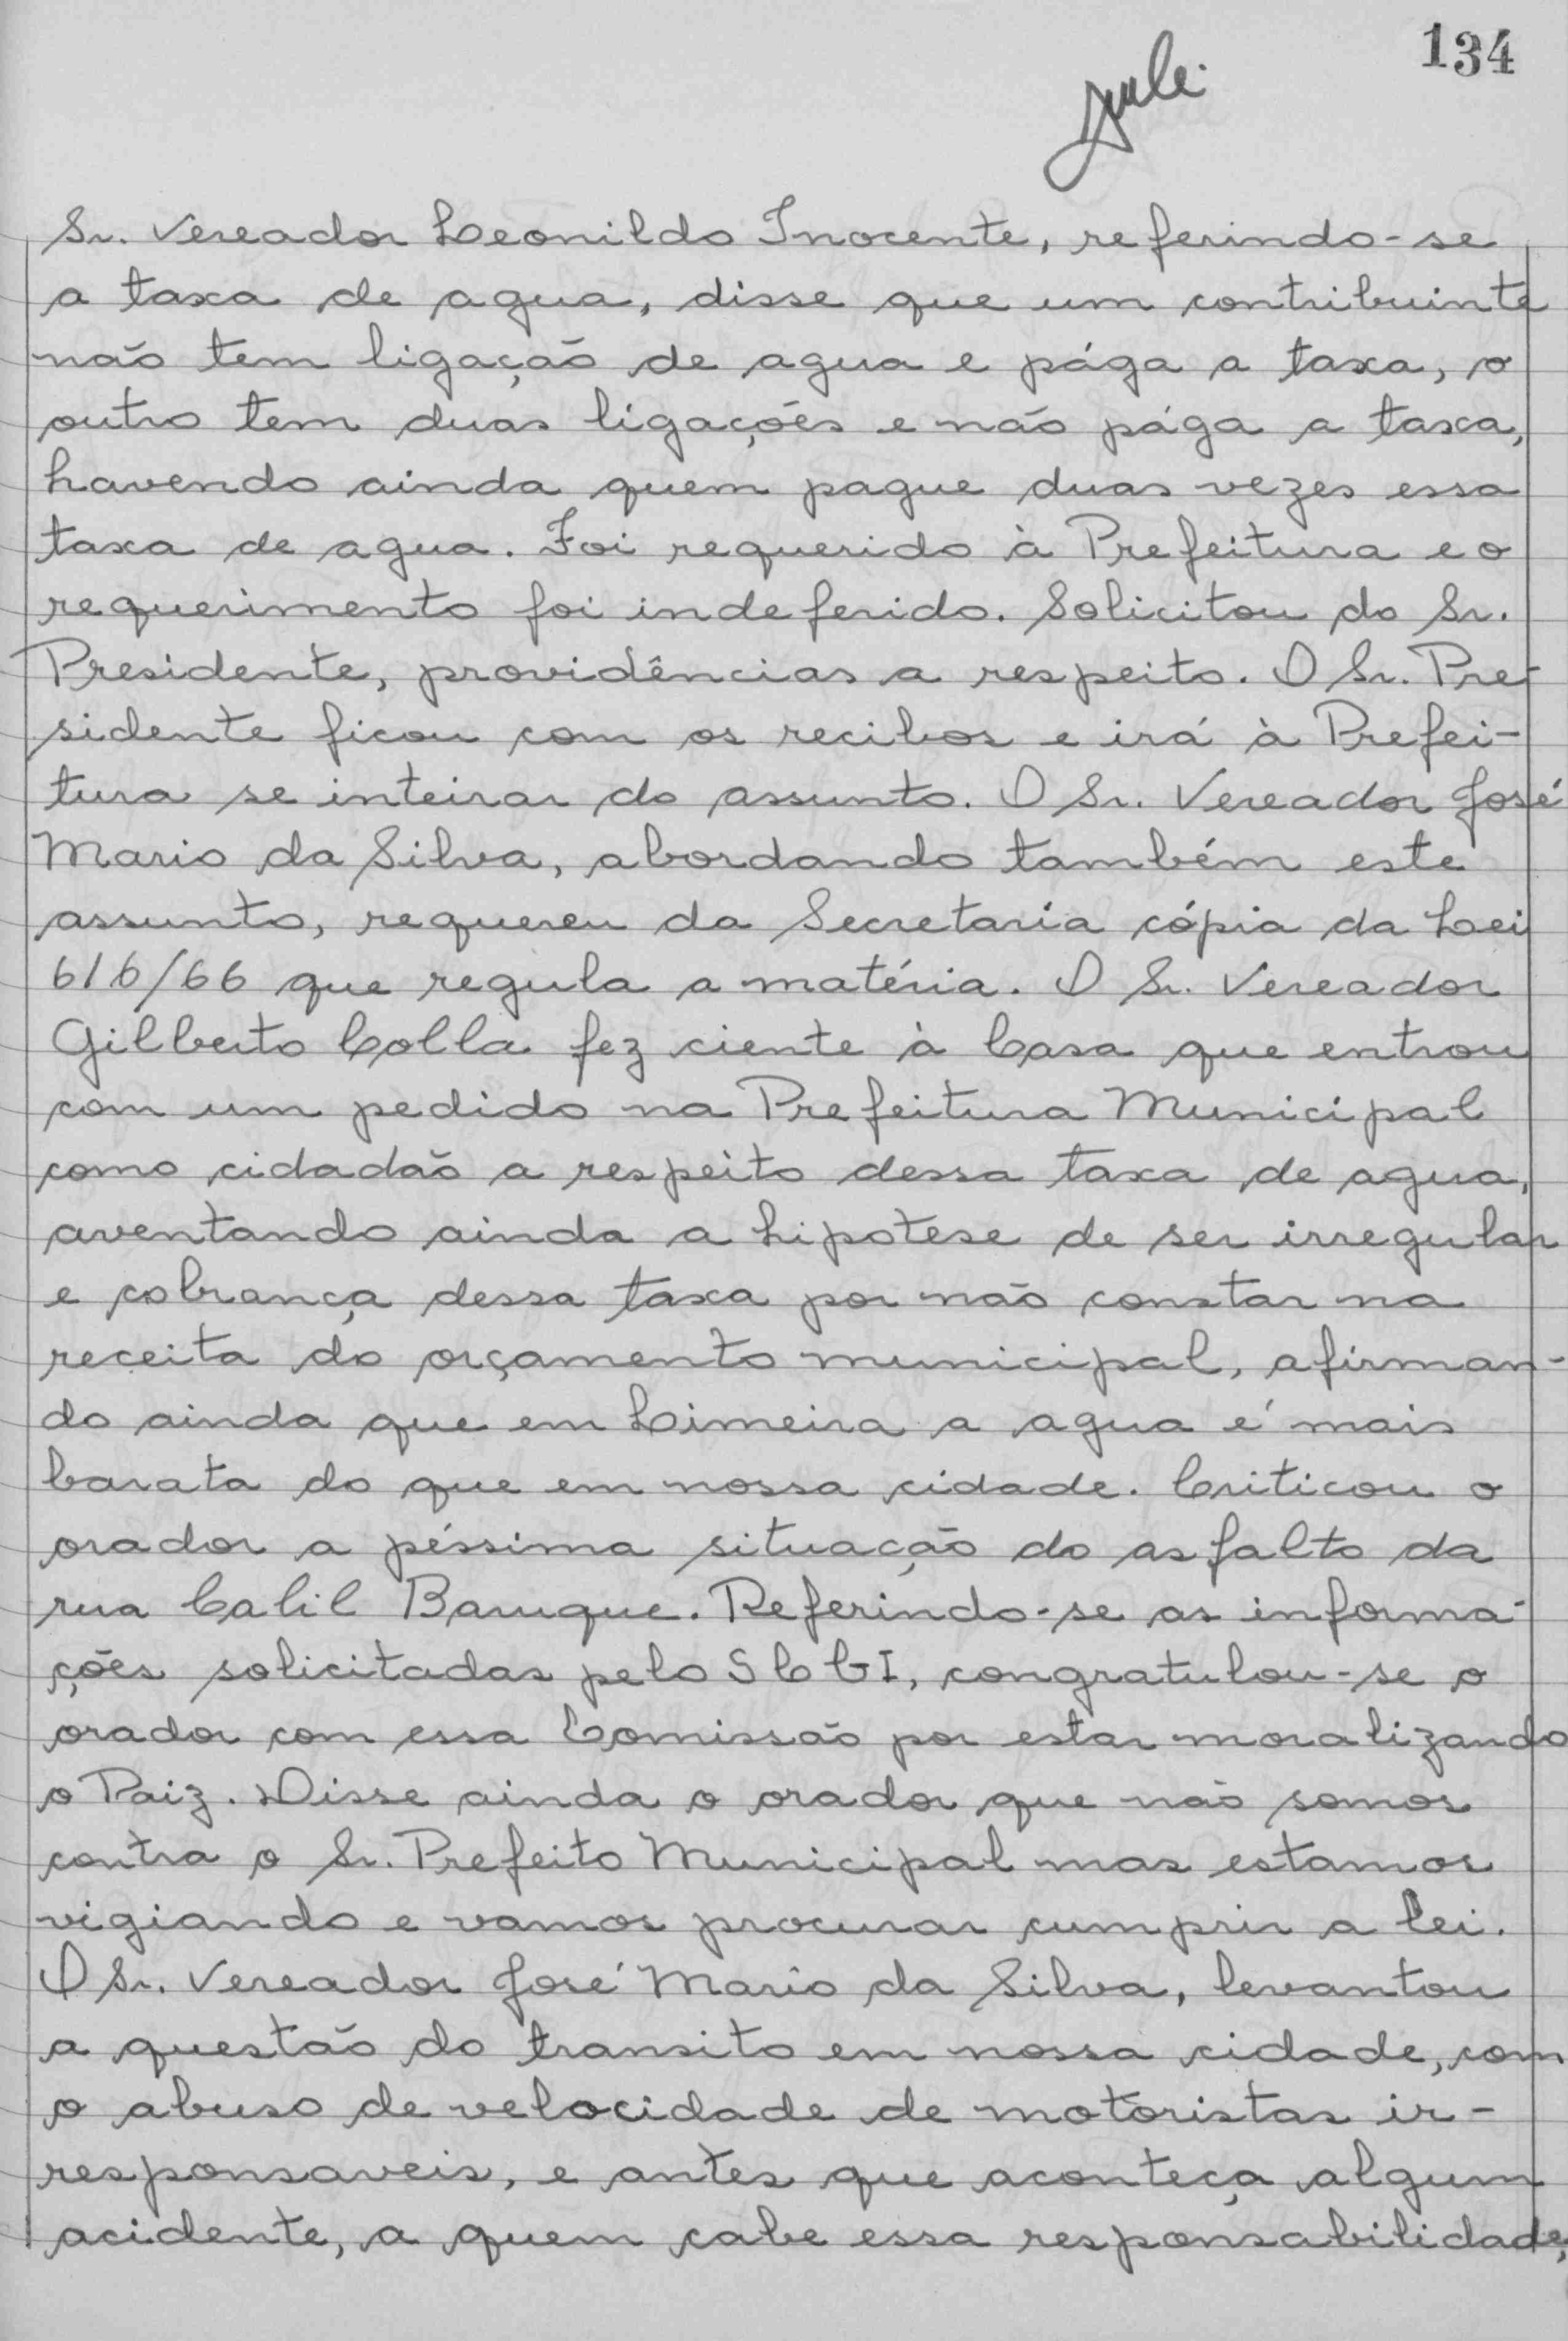 134
Sr. Vereador Leonildo Inocente, referindo-se
a taxa de agua, disse que um contribuinte
não tem ligação de agua e pága a taxa, o
outro tem duas ligações e não pága a taxa,
havendo ainda quem pague duas vezes essa
taxa de agua. Foi requerido à Prefeitura e o
requerimento foi indeferido. Solicitou do Sr.
Presidente, providências a respeito. O Sr. Pre-
sidente ficou com os recibos e irá à Prefei-
tura se inteirar do assunto. O Sr. Vereador José
Mario da Silva, abordando também este
assunto, requereu da Secretaria cópia da Lei
616/66 que regula a matéria. O Sr. Vereador
Gilberto Colla fez ciente à Casa que entrou
com um pedido na Prefeitura Municipal
como cidadão a respeito dessa taxa de agua,
aventando ainda a hipotese de ser irregular
e cobrança dessa taxa por não constar na
receita do orçamento municipal, afirman-
do ainda que em Limeira a agua é mais
barata do que em nossa cidade. Criticou o
orador a péssima situação do asfalto da
rua Calil Baruque. Referindo-se as informa-
ções solicitadas pelo SCGI, congratulou-se o
orador com essa Comissão por estar moralizando
o Paiz. Disse ainda o orador que não somos
contra o Sr. Prefeito Municipal mas estamos
vigiando e vamos procurar cumprir a lei.
O Sr. Vereador José Mario da Silva, levantou
a questão do transito em nossa cidade, com
o abuso de velocidade de motoristas ir-
responsaveis, e antes que aconteça algum
acidente, a quem cabe essa responsabilidade,